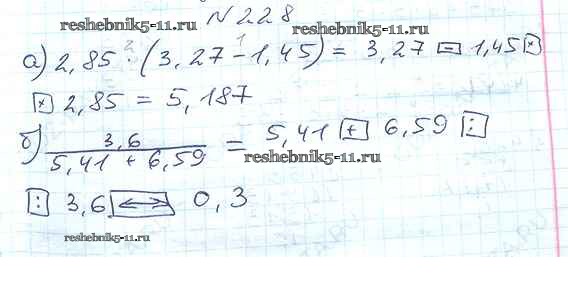 N 228
reshebnik5-11.ru reshebnik5-11.ru
а) 2,85 · (3,27 - 1,45) = 3,27 [-] 1,45 [×]
2 1
[×] 2,85 = 5,187
б) 3,6 / 5,41 + 6,59 = 5,41 [+] 6,59 [:]
reshebnik5-11.ru
[:] 3,6 [↔] 0,3
reshebnik5-11.ru